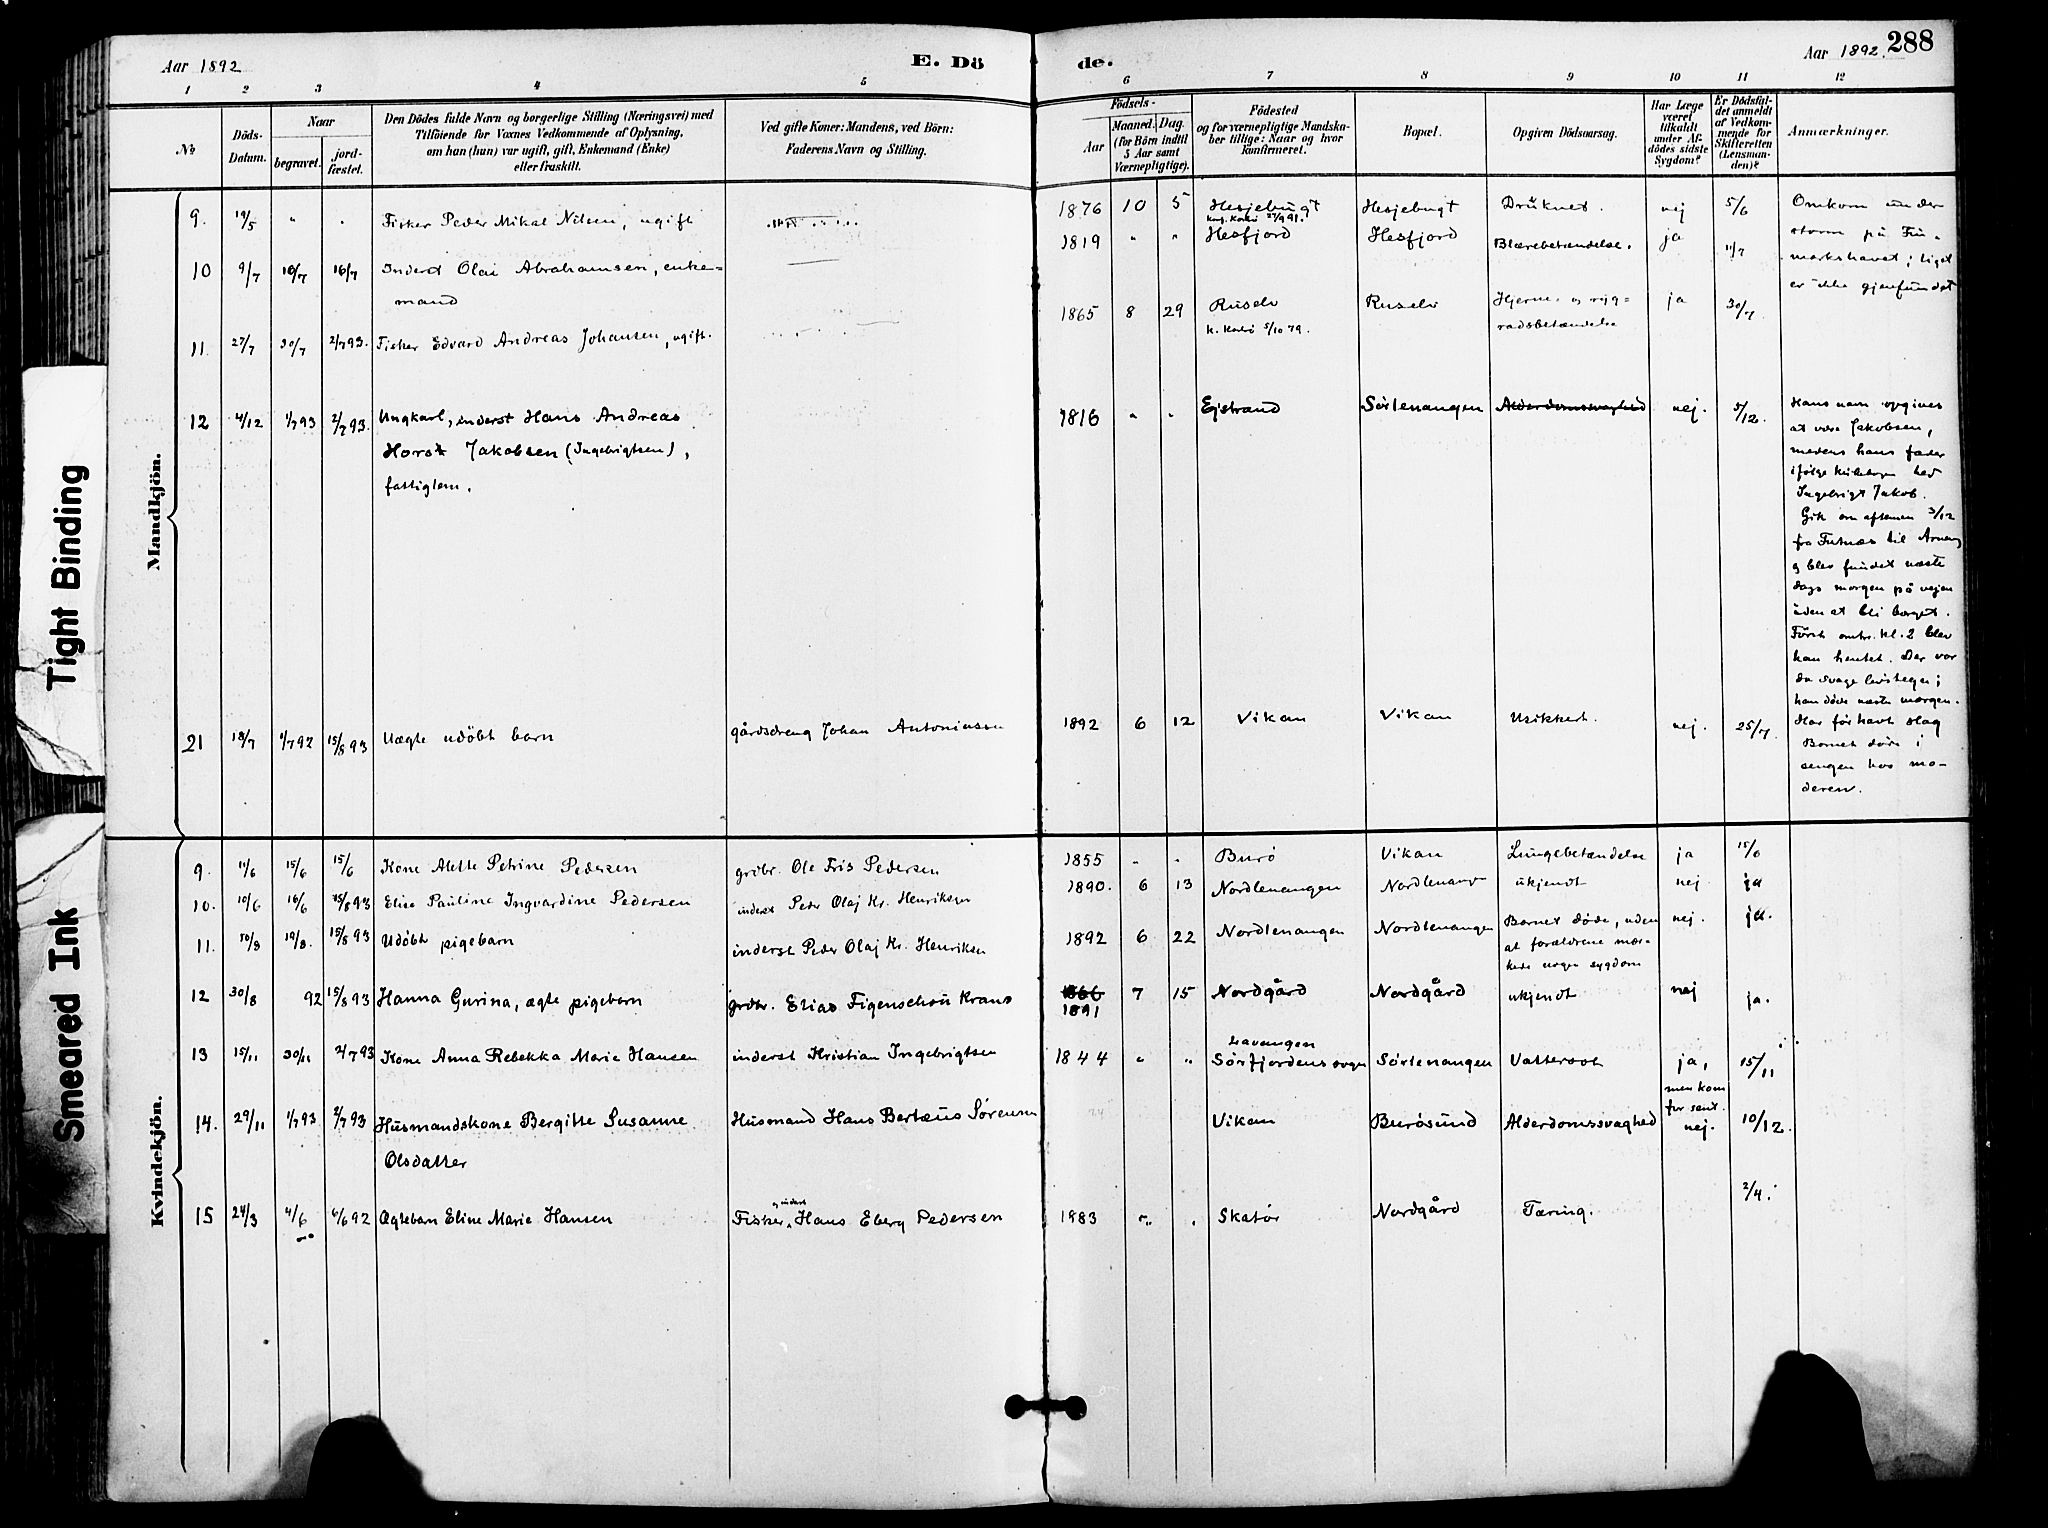 Aar 1892
E. Dö
de.
Aar 1892.
288
1 2 3 4 5 6 7 8 9 10 11 12
No
Döds-Datum.
Naar
begravet.
jord-fæstet.
Den Dödes fulde Navn og borgerlige Stilling (Næringsvei) med
Tilföiende for Voxnes Vedkommende af Oplysning,
om han (hun) var ugift, gift, Enkemand (Enke)
eller fraskilt.
Ved gifte Koner: Mandens, ved Börn:
Faderens Navn og Stilling.
Födsels-
Aar
Maaned. Dag.
(for Börn indtil
5 Aar samt
Værnepligtige).
Födested
og for værnepligtige Mandska-
ber tillige: Naar og hvor
konfirmeret.
Bopæl.
Opgiven Dödsaarsag.
Har Læge
været
tilkaldt
under Af-
dödes sidste
Sygdom?
Er Dödsfal-
det anmeldt
af Vedkom-
mende for
Skifteretten
(Lensman-
den)?
Anmærkninger.
Tight Binding
Smeared Ink
Mandkjön.
9. 19/5 " " Fisker Peder Mikal Nilsen, ugift
1876 10 5 Hesjebugt Hesjebugt Druknet. nej 5/6
10 9/7 16/7 16/7 Inderst Olai Abrahamsen, enke-
mand
1819 " " Hesfjord Hesfjord Blærebetændelse. ja 11/7
11. 27/7 30/7 2/7 93. Fisker Edvard Andreas Johansen, ugift.
1865 8 29 Ruselv Ruselv Hjerne- og ryg-
radsbetændelse ja 30/7
k. Karlsö 5/10 79.
Omkom under
storm på Fin-
markshavet; liget
er ikke gjenfundet
12 4/12 1/7 93 2/7 93. Ungkarl, inderst Hans Andreas
Horst Jakobsen (Ingebrigtsen),
fattiglem.
1816 " " Ejstrand Sörlenangen Alderdomssvaghed nej. 5/12.
Hans navn opgives
at være Jakobsen,
medens hans fader
ifölge kirkebogen hed
Ingebrigt Jakob.
Gik om aftenen 3/12
fra
til
og blev fundet næste
dags morgen på vejen
uden at bli berget.
Först omtr. kl. 2 blev
han hentet. Der var
da svage livstegn;
han döde næste morgen.
Har för havt slag
21 18/7 1/7 92 15/8 93 Uægte udöbt barn gårdsdreng Johan Antoniussen
1892 6 12 Vikan Vikan Usikkert. nej. 25/7.
Barnet döde i
sengen hos mo-
deren.
Kvindekjön.
9. 11/6 15/6 15/6 Kone Alette Petrine Pedersen grdbr. Ole Fris Pedersen
1855 " " Burö Vikan Lungebetændelse ja 15/6
10. 10/6 16/6 15/8 93 Elise Pauline Ingvardine Pedersen inderst Peder Olaj Kr. Henriksen
1890. 6 13 Nordlenangen Nordlenang ukjendt nej ja
11. 10/8 19/8. 15/8 93 Udöbt pigebarn inderst Peder Olaj Kr. Henriksen
1892 6 22 Nordlenangen Nordlenangen Barnet döde, uden
at forældrene mær-
kede nogen sygdom nej. ja.
12 30/8 92 15/8 93 Hanna Gurina, ægte pigebarn grdbr. Elias Figenschou Krans
1866
1891 7 15 Nordgård Nordgård ukjendt nej ja.
13 15/11 30/11 2/7 93 Kone Anna Rebekka Marie Hansen inderst Kristian Ingebrigtsen
1844 " " Lavangen
Sörfjordens sogn Sörlenangen Vattersot ja,
men kom
for sent. 15/11
14. 29/11 1/7 93 2/7 93 Husmandskone Bergitte Susanne
Olsdatter Husmand Hans Bertæus Sörensen
Vikan Burösund Alderdomssvaghed nej. 10/12.
15 24/3 4/6 6/6 92 Ægtebarn Eline Marie Hansen Fisker og inderst Hans Eberg Pedersen
1983 " " Skatör Nordgård Tæring. 2/4.